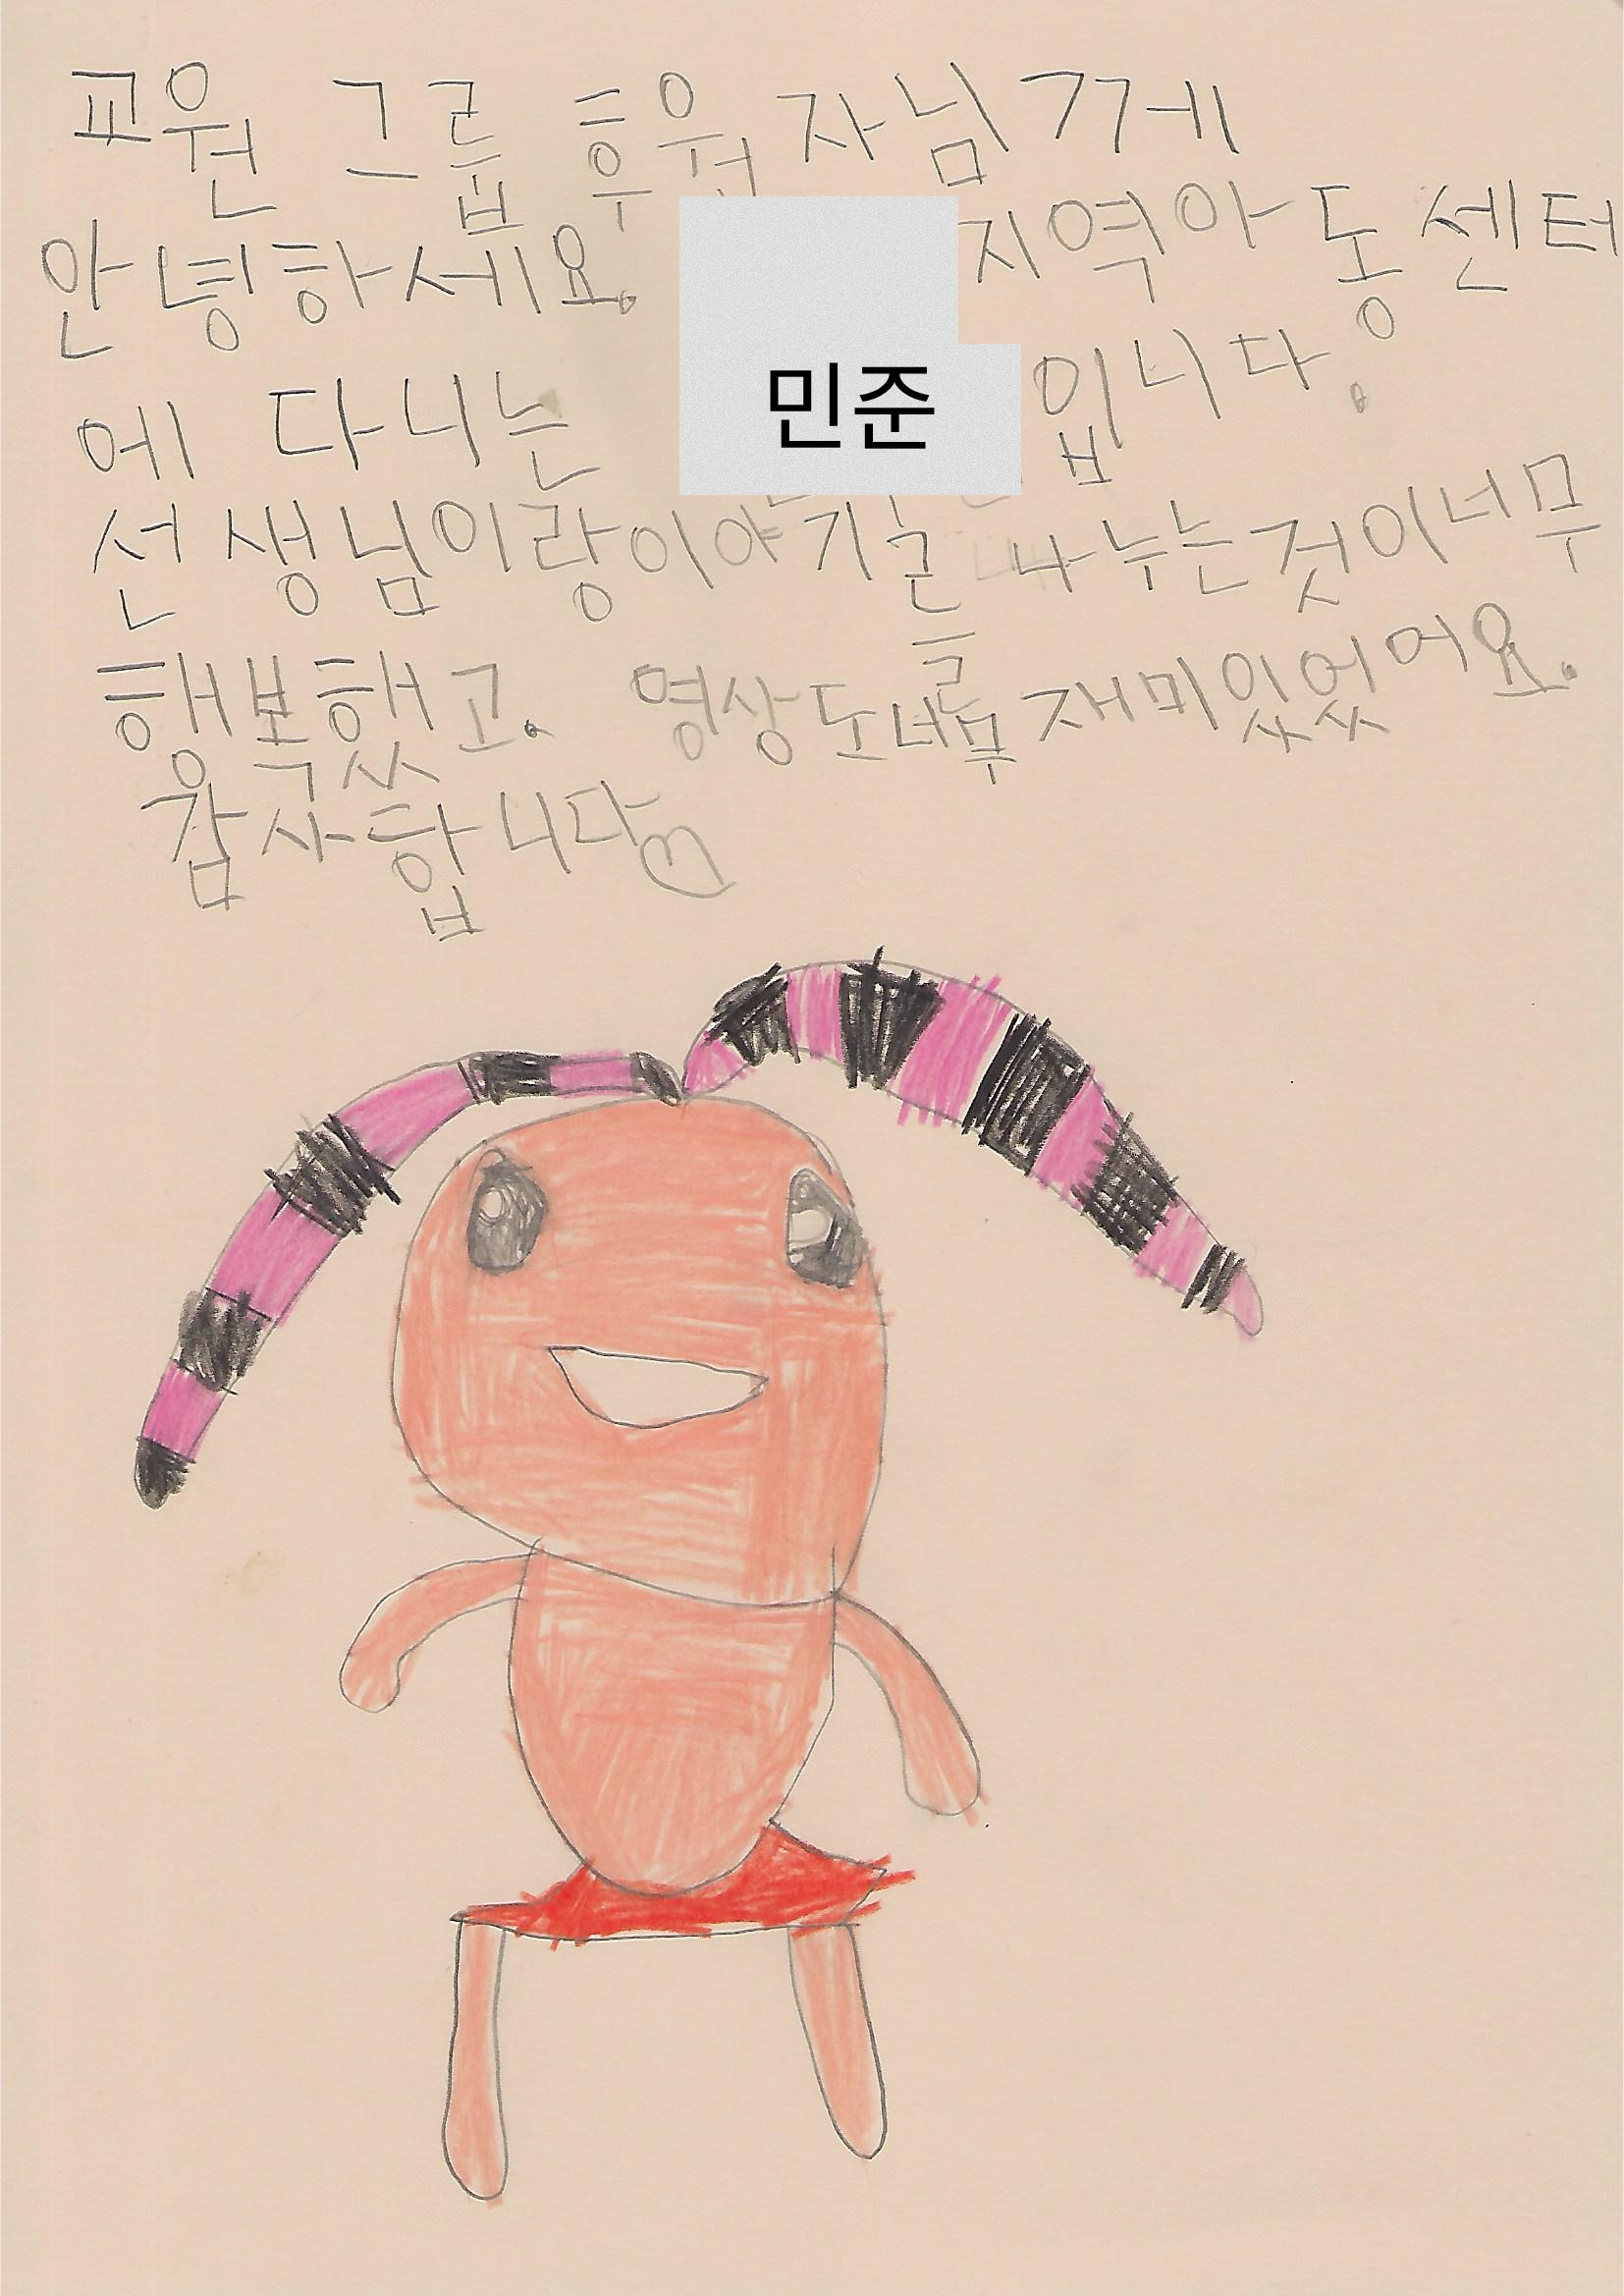 교원 그룹 후원자님께
안녕하세요. 지역아동센터
에 다니는 민준 입니다.
선생님이랑이야기를 나누는것이너무
행복했고. 영상도너무재미있었어요.
감사합니다♡